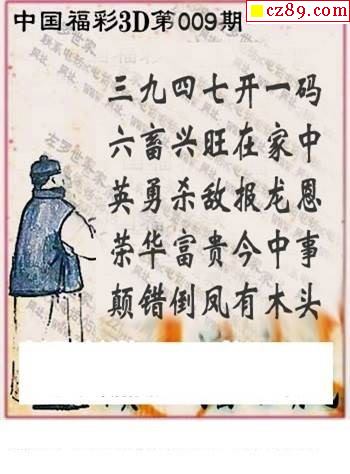 cz89.com
中国福彩3D第009期
三九四七开一码
六畜兴旺在家中
英勇杀敌报龙恩
荣华富贵今中事
颠错倒凤有木头